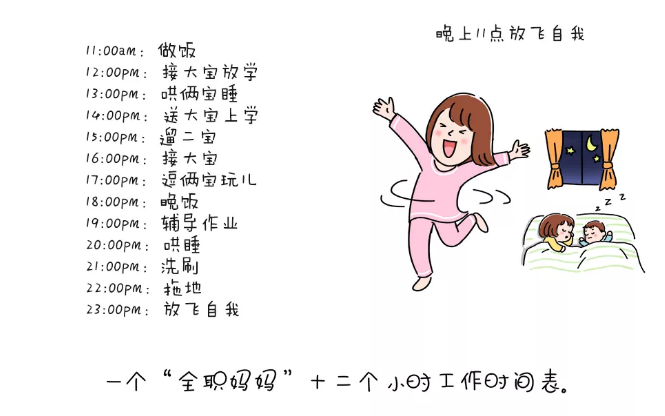 晚上11点放飞自我
11:00am: 做饭
12:00pm: 接大宝放学
13:00pm: 哄俩宝睡
14:00pm: 送大宝上学
15:00pm: 遛二宝
16:00pm: 接大宝
17:00pm: 逗俩宝玩儿
18:00pm: 晚饭
19:00pm: 辅导作业
20:00pm: 哄睡
21:00pm: 洗刷
22:00pm: 拖地
23:00pm: 放飞自我
z z z
一个“全职妈妈”十二个小时工作时间表。